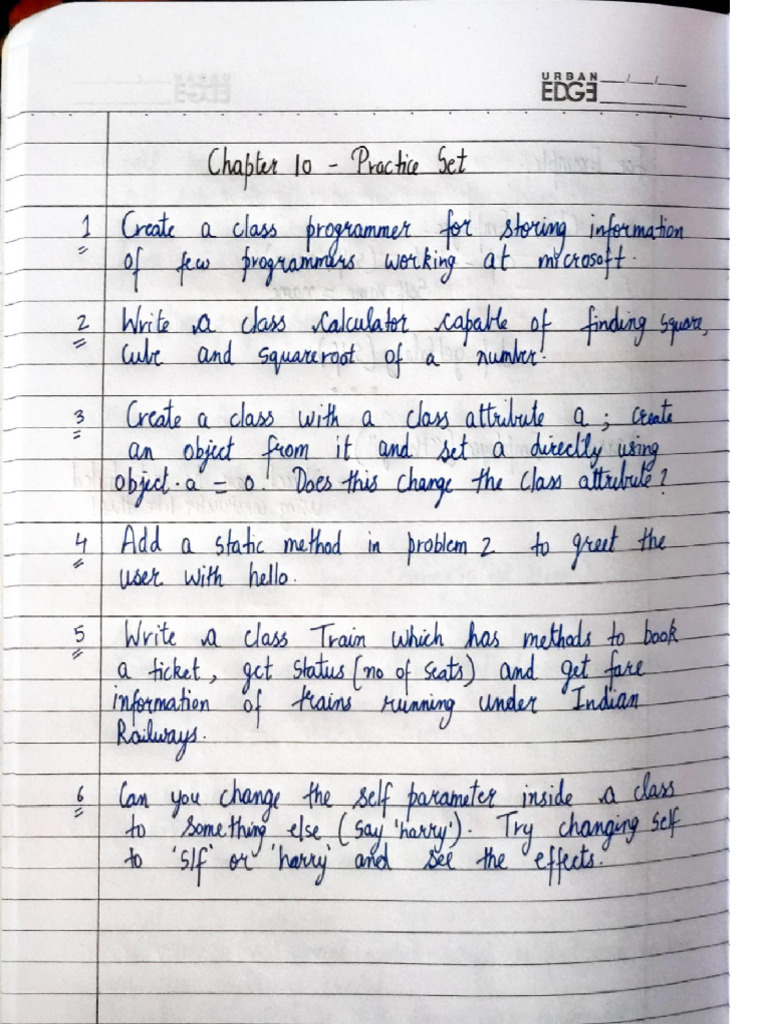 URBAN
EDGE
Chapter 10 - Practice Set
1 Create a class programmer for storing information
of few programmers working at microsoft.
2 Write a class calculator capable of finding square,
cube and squareroot of a number.
3 Create a class with a class attribute a; create
an object from it and set a directly using
object.a = 0. Does this change the class attribute?
4 Add a static method in problem 2 to greet the
user with hello.
5 Write a class Train which has methods to book
a ticket, get status (no of seats) and get fare
information of trains running under Indian
Railways.
6 Can you change the self parameter inside a class
to something else (say 'harry'). Try changing self
to 'slf' or 'harry' and see the effects.